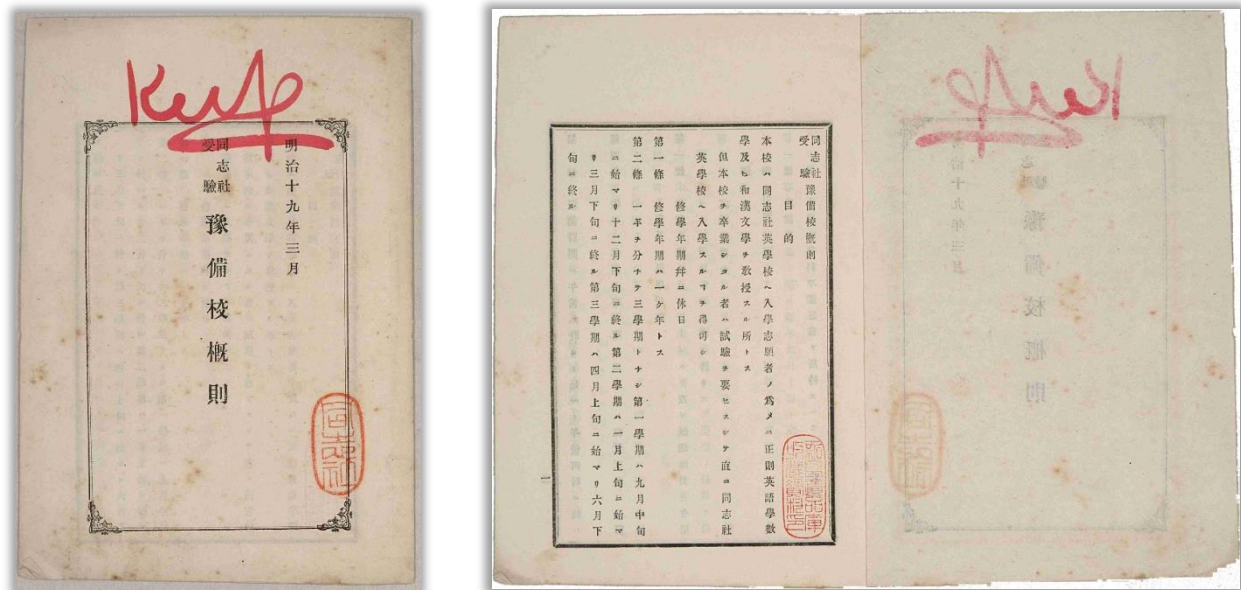 Keep
明治十九年三月
同志社
受驗
豫備校概則
同志社
同志社
受驗
豫備校概則
目的
本校ハ同志社英學校ヘ入學志願者ノ爲メニ正則英語學數
學及ヒ和漢文學ヲ敎授スル所トス
但本校ヲ卒業シタル者ハ試驗ヲ要セスシテ直ニ同志社
英學校ヘ入學スルヿヲ得可シ
修學年期幷ニ休日
第一條 修學年期ハ一ケ年トス
第二條 一年ヲ分チテ三學期トナシ第一學期ハ九月中旬
ニ始マリ十二月下旬ニ終ル第二學期ハ一月上旬ニ始マ
リ三月下旬ニ終ル第三學期ハ四月上旬ニ始マリ六月下
旬ニ終ル
一